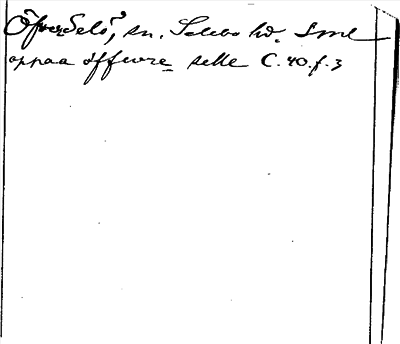 Överselö, sn. Selebo hd. Sml
oppaa öffwre selle C.40.f.3